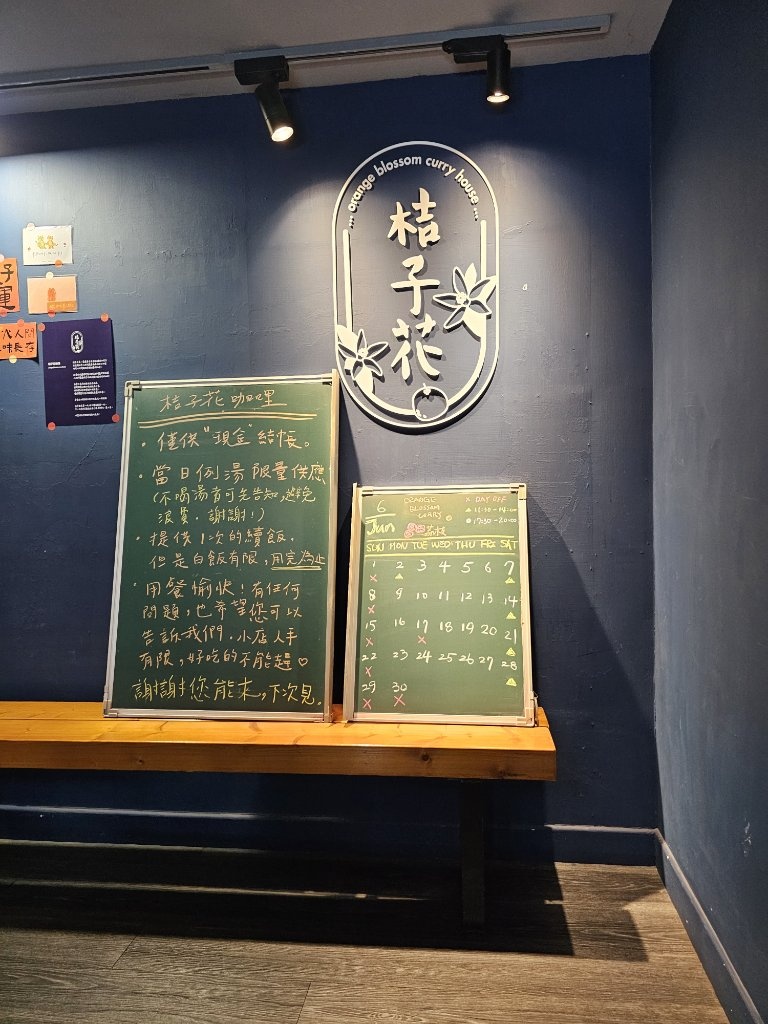 ... orange blossom curry house ...
桔
子
花
子
運
人間
味長存
桔子花
桔子花 咖哩
・僅供"現金"結帳。
・當日例湯限量供應
(不喝湯者可先告知,避免
浪費。謝謝!)
・提供1次的續飯。
但是白飯有限,用完為止
・用餐愉快!有任何
問題,也希望您可以
告訴我們。小店人手
有限,好吃的不能趕♡
謝謝您能來,下次見。
6
Jun
ORANGE
BLOSSOM
CURRY
x DAY OFF
▲ 11:30-14:00
● 17:30-20:00
SUN MON TUE WED THU FRI SAT
1 2 3 4 5 6 7
x ▲ ▲
8 9 10 11 12 13 14
x ▲
15 16 17 18 19 20 21
x x ▲
22 23 24 25 26 27 28
x ▲
29 30
x x